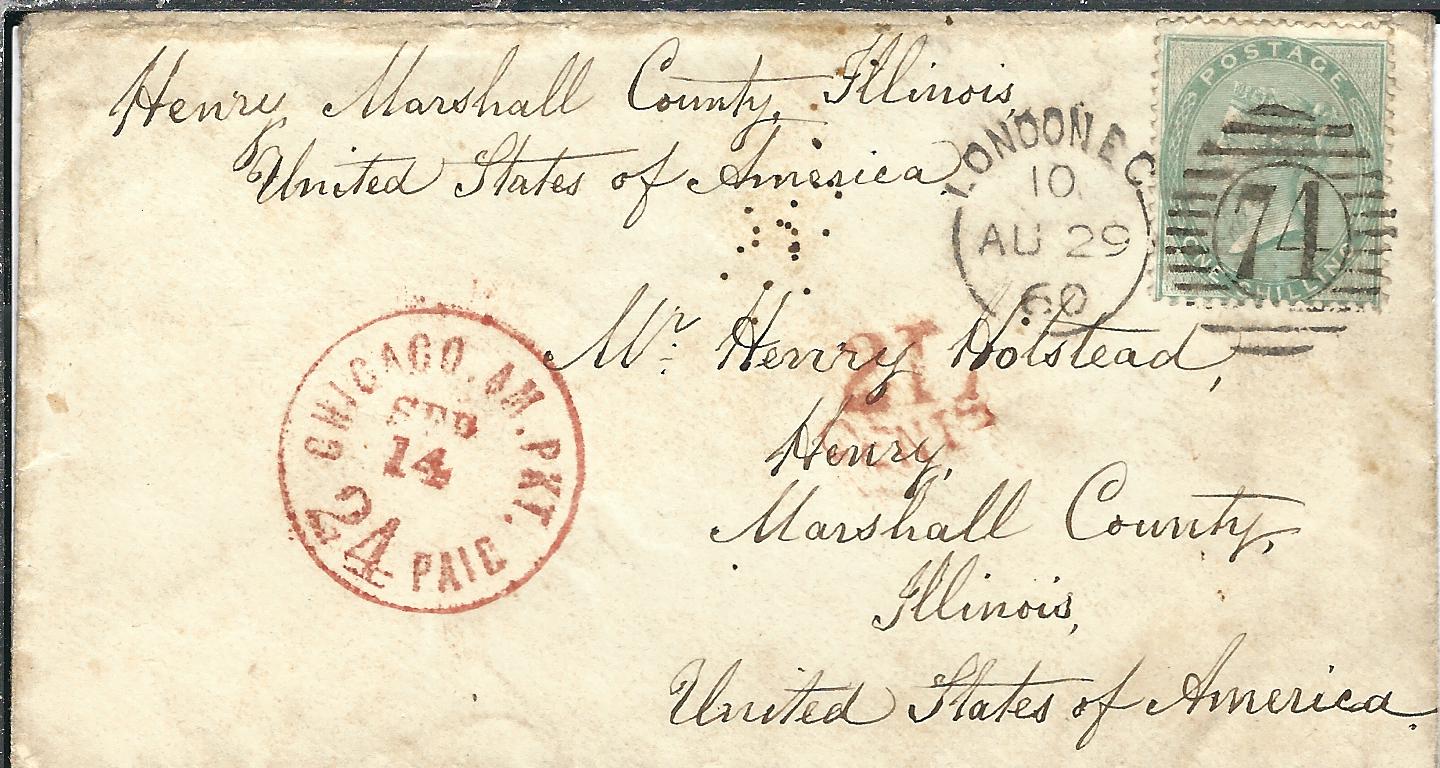 Henry, Marshall County, Illinois,
United States of America
POSTAGE
ONE SHILLING
74
LONDON E C
10
AU 29
60
Mr. Henry Holstead,
21
CENTS
Henry,
Marshall County,
Illinois,
United States of America.
CHICAGO. AM. PKT.
SEP
14
24 PAID